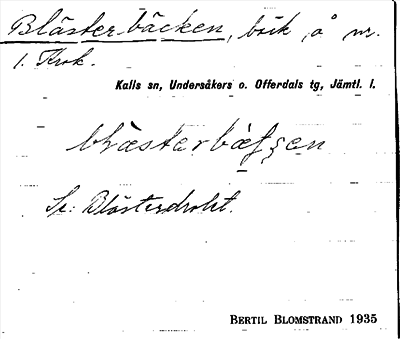 Blästerbäcken, bäck, å nr.
1. Krok.
Kalls sn, Undersåkers o. Offerdals tg, Jämtl. l.
Se: Blästerdrolet.
BERTIL BLOMSTRAND 1935